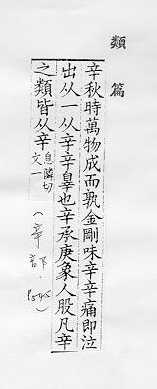 類篇
辛秋時萬物成而孰金剛味辛辛痛即泣
出从一从辛辛辠也辛承庚象人股凡辛
之類皆从辛 息隣切
文一
(辛部 P545)